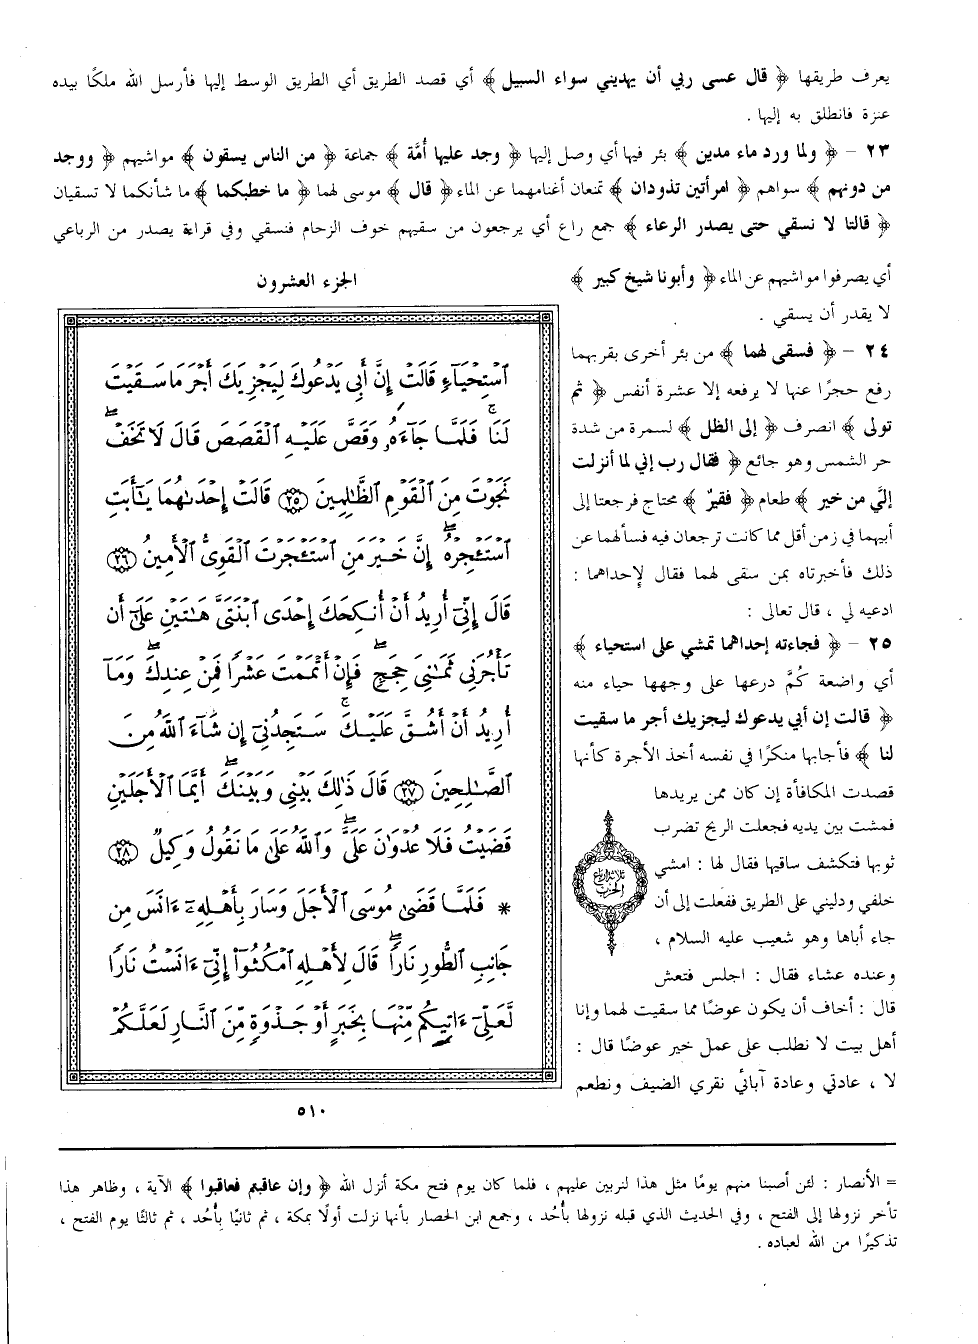 يعرف طريقها ﴿ قال عسى ربي أن يهديني سواء السبيل ﴾ أي قصد الطريق أي الطريق الوسط إليها فأرسل الله ملكًا بيده
عنزة فانطلق به إليها .
٢٣ – ﴿ ولما ورد ماء مدين ﴾ بئر فيها أي وصل إليها ﴿ وجد عليها أُمَّة ﴾ جماعة ﴿ من الناس يسقون ﴾ مواشيهم ﴿ ووجد
من دونهم ﴾ سواهم ﴿ امرأتين تذودان ﴾ تمنعان أغنامهما عن الماء ﴿ قال ﴾ موسى لهما ﴿ ما خطبكما ﴾ ما شأنكما لا تسقيان
﴿ قالتا لا نسقي حتى يصدر الرعاء ﴾ جمع راع أي يرجعون من سقيهم خوف الزحام فنسقي وفي قراءة يصدر من الرباعي
أي يصرفوا مواشيهم عن الماء ﴿ وأبونا شيخ كبير ﴾
لا يقدر أن يسقي .
٢٤ – ﴿ فسقى لهما ﴾ من بئر أخرى بقربهما
رفع حجرًا عنها لا يرفعه إلا عشرة أنفس ﴿ ثم
تولى ﴾ انصرف ﴿ إلى الظل ﴾ لسمرة من شدة
حر الشمس وهو جائع ﴿ فقال رب إني لما أنزلت
إليَّ من خير ﴾ طعام ﴿ فقيرٌ ﴾ محتاج فرجعتا إلى
أبيهما في زمن أقل مما كانت ترجعان فيه فسألهما عن
ذلك فأخبرتاه بمن سقى لهما فقال لإحداهما :
ادعيه لي ، قال تعالى :
٢٥ – ﴿ فجاءته إحداهما تمشي على استحياء ﴾
أي واضعة كُمَّ درعها على وجهها حياء منه
﴿ قالت إن أبي يدعوك ليجزيك أجر ما سقيت
لنا ﴾ فأجابها منكرًا في نفسه أخذ الأجرة كأنها
قصدت المكافأة إن كان ممن يريدها
فمشت بين يديه فجعلت الريح تضرب
ثوبها فتكشف ساقيها فقال لها : امشي
خلفي ودليني على الطريق ففعلت إلى أن
جاء أباها وهو شعيب عليه السلام ،
وعنده عشاء فقال : اجلس فتعش
قال : أخاف أن يكون عوضًا مما سقيت لهما وإنا
أهل بيت لا نطلب على عمل خير عوضًا قال :
لا ، عادتي وعادة آبائي نقري الضيف ونطعم
ثلاثة أرباع
الحزب
الجزء العشرون
ٱسْتِحْيَآءٍ قَالَتْ إِنَّ أَبِي يَدْعُوكَ لِيَجْزِيَكَ أَجْرَ مَا سَقَيْتَ
لَنَاۚ فَلَمَّا جَآءَهُۥ وَقَصَّ عَلَيْهِ ٱلْقَصَصَ قَالَ لَا تَخَفْۖ
نَجَوْتَ مِنَ ٱلْقَوْمِ ٱلظَّٰلِمِينَ ٢٥ قَالَتْ إِحْدَىٰهُمَا يَٰٓأَبَتِ
ٱسْتَـْٔجِرْهُۖ إِنَّ خَيْرَ مَنِ ٱسْتَـْٔجَرْتَ ٱلْقَوِيُّ ٱلْأَمِينُ ٢٦
قَالَ إِنِّيٓ أُرِيدُ أَنْ أُنكِحَكَ إِحْدَى ٱبْنَتَيَّ هَٰتَيْنِ عَلَىٰٓ أَن
تَأْجُرَنِي ثَمَٰنِيَ حِجَجٍۖ فَإِنْ أَتْمَمْتَ عَشْرًا فَمِنْ عِندِكَۖ وَمَآ
أُرِيدُ أَنْ أَشُقَّ عَلَيْكَۚ سَتَجِدُنِيٓ إِن شَآءَ ٱللَّهُ مِنَ
ٱلصَّٰلِحِينَ ٢٧ قَالَ ذَٰلِكَ بَيْنِي وَبَيْنَكَۖ أَيَّمَا ٱلْأَجَلَيْنِ
قَضَيْتُ فَلَا عُدْوَٰنَ عَلَيَّۖ وَٱللَّهُ عَلَىٰ مَا نَقُولُ وَكِيلٌ ٢٨
* فَلَمَّا قَضَىٰ مُوسَى ٱلْأَجَلَ وَسَارَ بِأَهْلِهِۦٓ ءَانَسَ مِن
جَانِبِ ٱلطُّورِ نَارًاۖ قَالَ لِأَهْلِهِ ٱمْكُثُوٓا۟ إِنِّيٓ ءَانَسْتُ نَارًا
لَّعَلِّيٓ ءَاتِيكُم مِّنْهَا بِخَبَرٍ أَوْ جَذْوَةٍ مِّنَ ٱلنَّارِ لَعَلَّكُمْ
٥١٠
= الأنصار : لئن أصبنا منهم يومًا مثل هذا لنربين عليهم ، فلما كان يوم فتح مكة أنزل الله ﴿ وإن عاقبتم فعاقبوا ﴾ الآية ، وظاهر هذا
تأخر نزولها إلى الفتح ، وفي الحديث الذي قبله نزولها بأُحد ، وجمع ابن الحصار بأنها نزلت أولًا بمكة ، ثم ثانيًا بأُحد ، ثم ثالثًا يوم الفتح ،
تذكيرًا من الله لعباده .